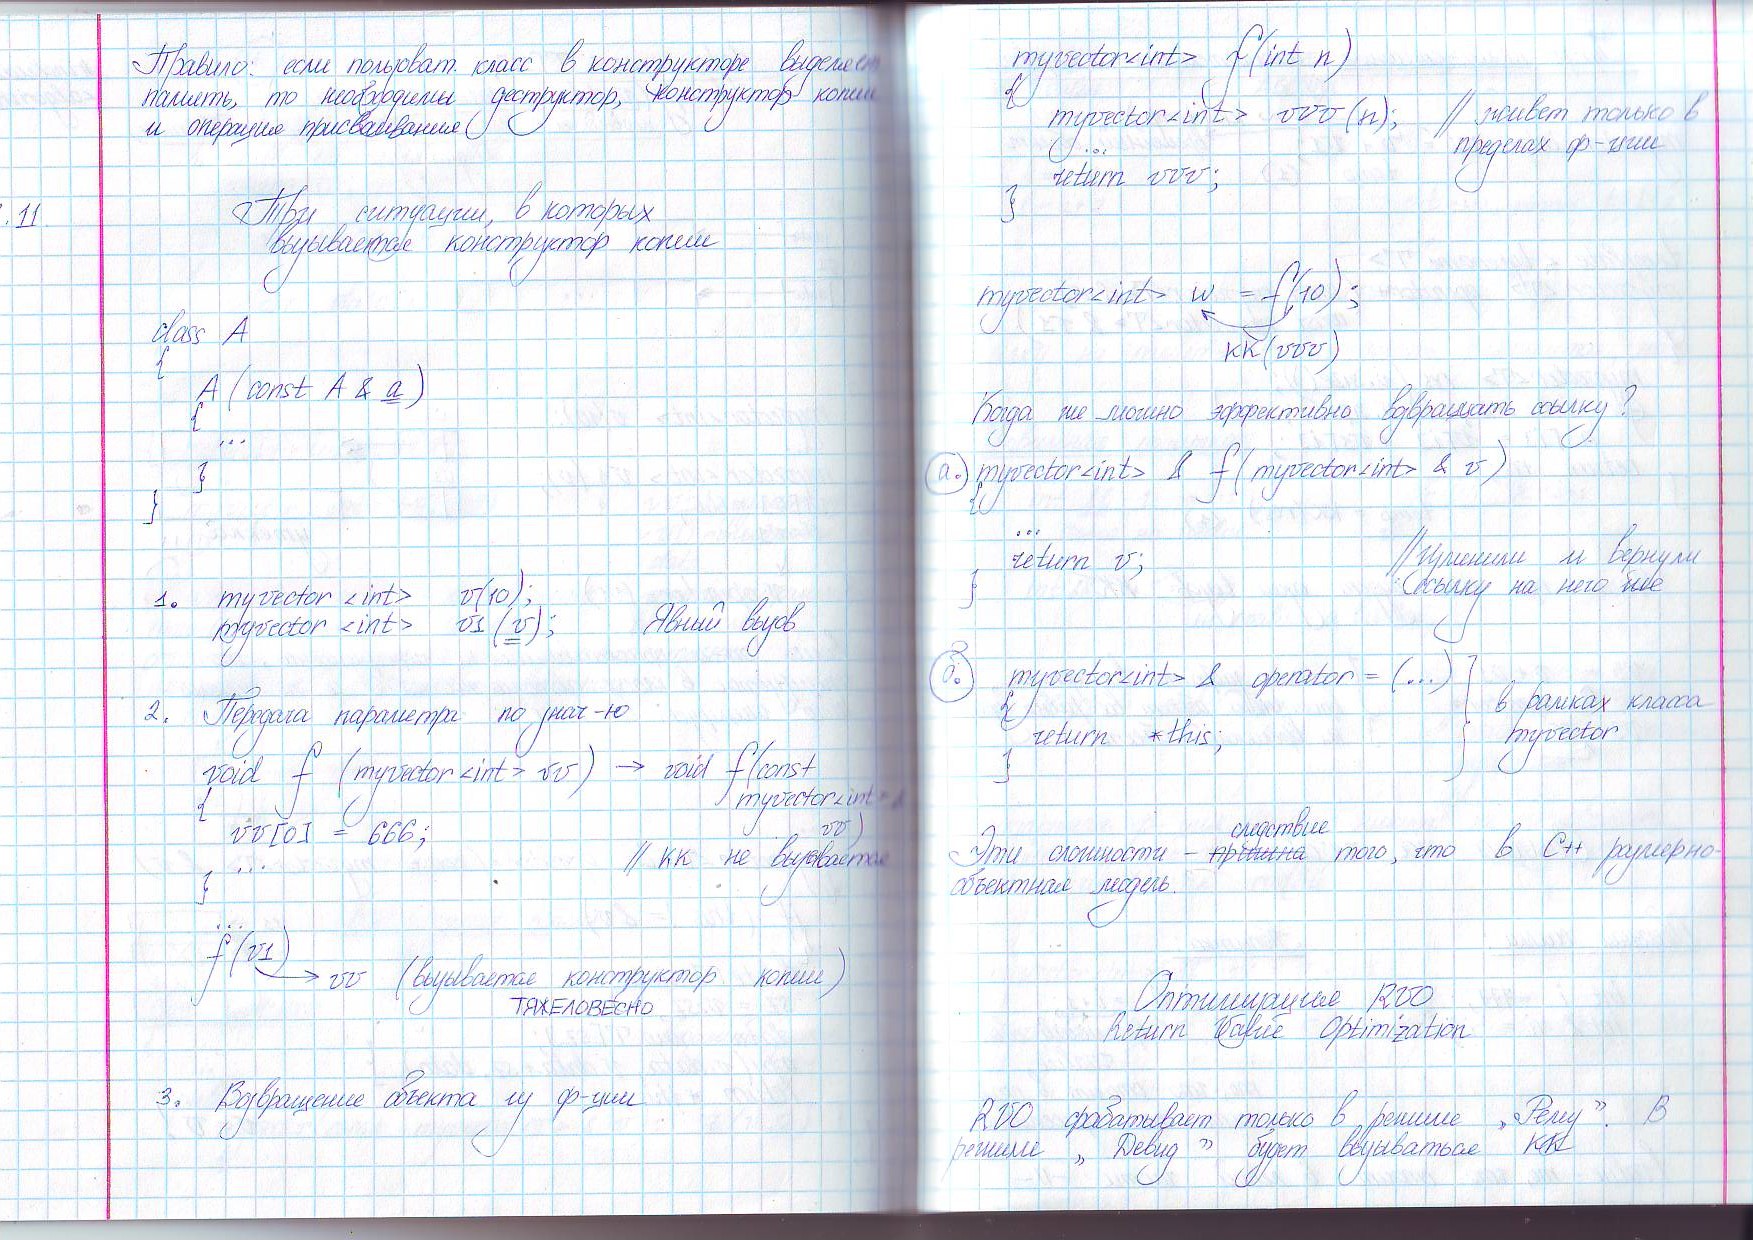 Правило: если пользоват. класс в конструкторе выделяет
память, то необходимы деструктор, конструктор копии
и операция присваивания
11
Три ситуации, в которых
вызывается конструктор копии
class A
{
A (const A & a)
{
...
}
}
1. myvector <int> v(10);
myvector <int> v1 (v); Явный вызов
2. Передача параметра по знач-ю
void f (myvector<int> vv) → void f(const
{ myvector<int> &
vv[0] = 666; vv)
... // КК не вызывается
}
...
f(v1)
→ vv (вызывается конструктор копии)
ТЯЖЕЛОВЕСНО
3. Возвращение объекта из ф-ции
myvector<int> f(int n)
{
myvector<int> vvv (n); // живет только в
... пределах ф-ции
return vvv;
}
myvector<int> w = f(10);
КК(vvv)
Когда же можно эффективно возвращать ссылку?
а. myvector<int> & f(myvector<int> & v)
{
...
return v; // Изменили и вернули
} ссылку на него же
б. myvector<int> & operator = (...)
{ в рамках класса
return *this; myvector
}
следствие
Эти сложности – причина того, что в C++ размерно-
объектная модель.
Оптимизация RVO
Return Value Optimization
RVO срабатывает только в режиме „Релиз". В
режиме „Дебуг" будет вызываться КК